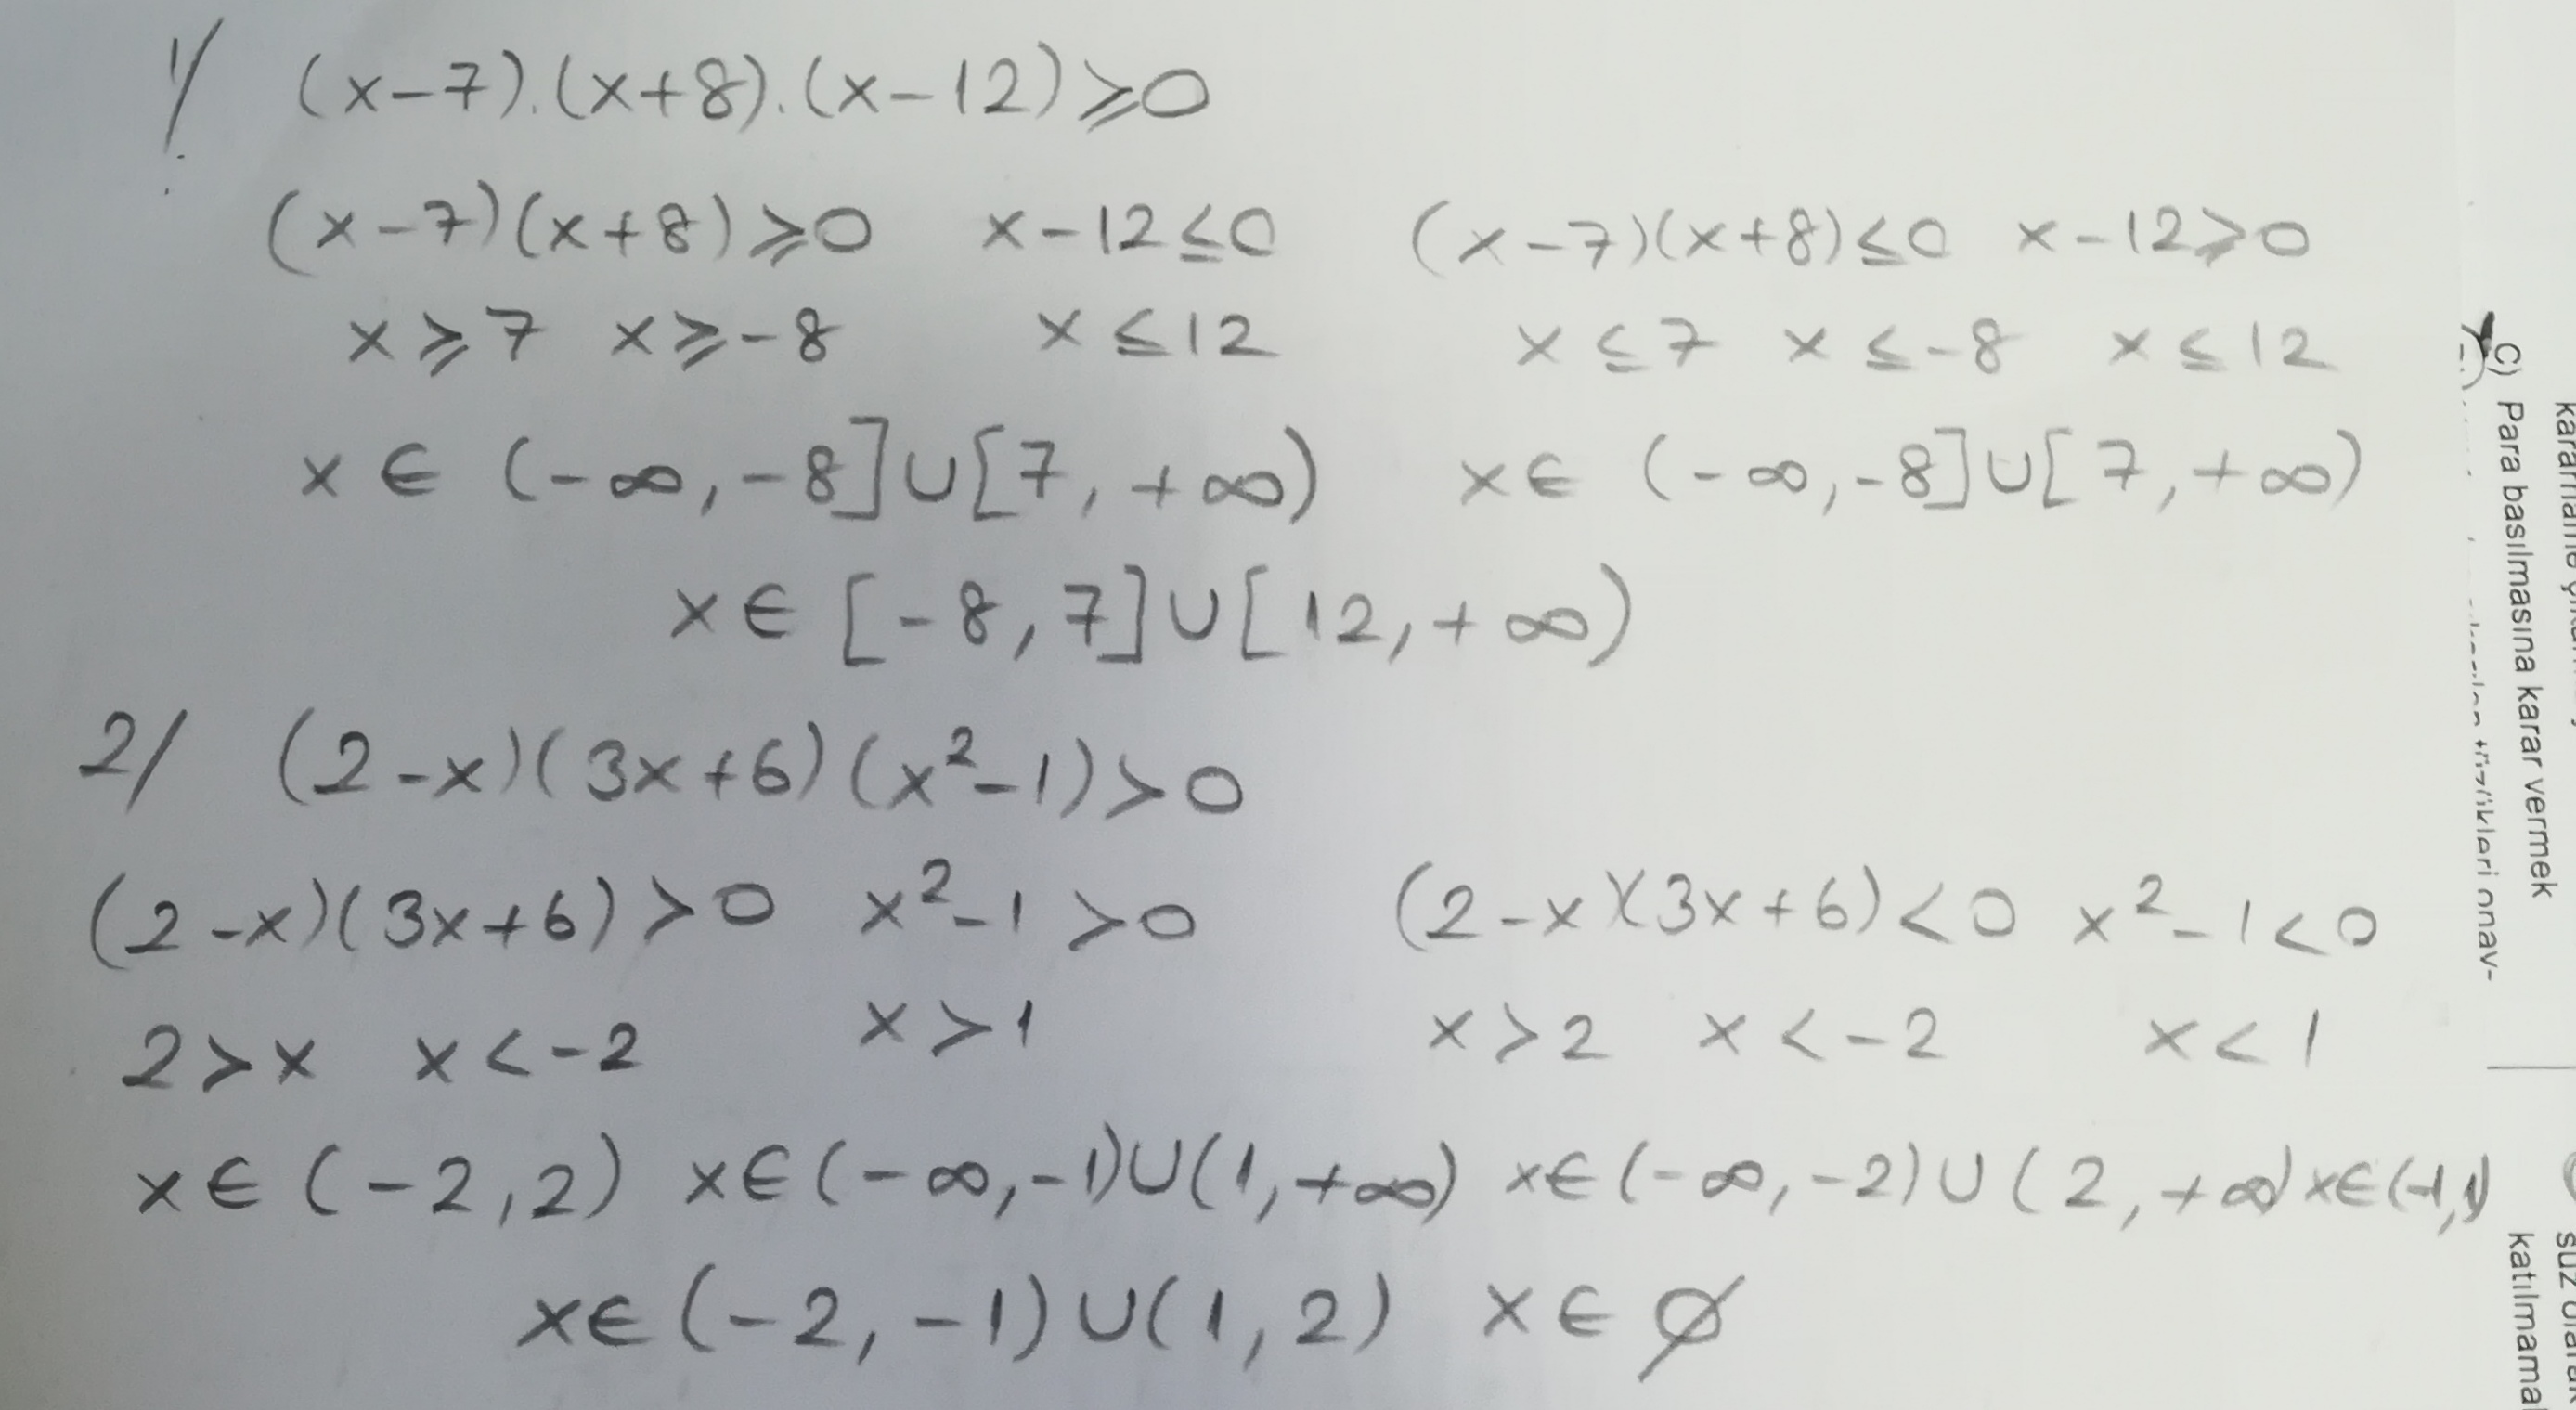 1/ (x-7).(x+8).(x-12)⩾0
(x-7)(x+8)⩾0 x-12≤0 (x-7)(x+8)≤0 x-12⩾0
x⩾7 x⩾-8 x≤12 x≤7 x≤-8 x≤12
x∈(-∞,-8]∪[7,+∞) x∈(-∞,-8]∪[7,+∞)
x∈[-8,7]∪[12,+∞)
2/ (2-x)(3x+6)(x²-1)>0
(2-x)(3x+6)>0 x²-1>0 (2-x)(3x+6)<0 x²-1<0
2>x x<-2 x>1 x>2 x<-2 x<1
x∈(-2,2) x∈(-∞,-1)∪(1,+∞) x∈(-∞,-2)∪(2,+∞) x∈(-1,1)
x∈(-2,-1)∪(1,2) x∈∅
C) Para basılmasına karar vermek
katılmama